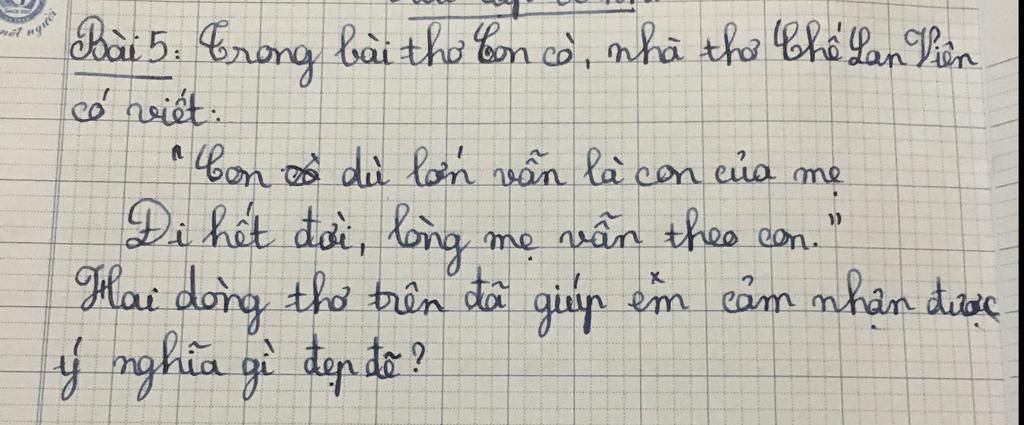 nét người
Bài 5: Trong bài thơ Con cò, nhà thơ Chế Lan Viên
có viết:
"Con dù lớn vẫn là con của mẹ
Đi hết đời, lòng mẹ vẫn theo con."
Hai dòng thơ trên đã giúp em cảm nhận được
ý nghĩa gì đẹp đẽ?